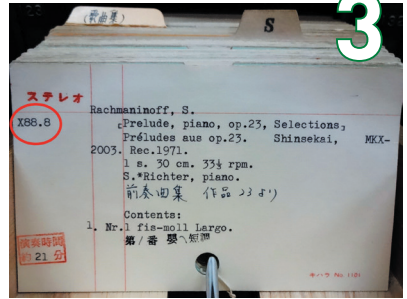 (歌曲集)
S
3
ステレオ
Rachmaninoff, S.
X88.8
[Prelude, piano, op.23, Selections]
Préludes aus op.23. Shinsekai, MKX-
2003. Rec.1971.
1 s. 30 cm. 33⅓ rpm.
S.*Richter, piano.
前奏曲集 作品23より
Contents:
1. Nr.1 fis-moll Largo.
第1番 嬰ヘ短調
演奏時間
約 21 分
キハラ No 1101